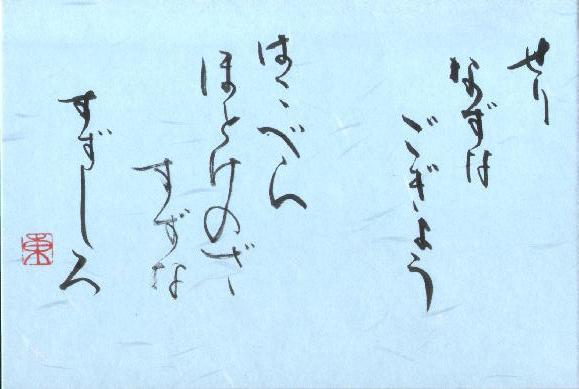 せり
なずな
ごぎょう
はこべら
ほとけのざ
すずな
すずしろ
東